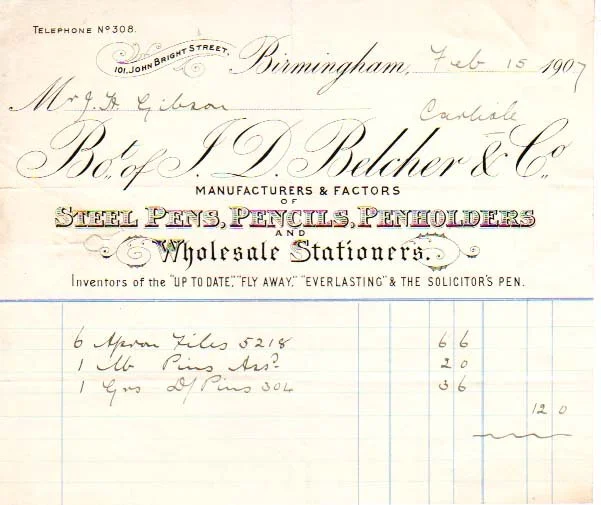 TELEPHONE No 308.
101, JOHN BRIGHT STREET.
Birmingham, Feb 15 1907
Mr J. H. Gibson
Carlisle
Bot. of J. D. Belcher & Co.
MANUFACTURERS & FACTORS
OF
STEEL PENS, PENCILS, PENHOLDERS
AND
Wholesale Stationers.
Inventors of the "UP TO DATE," "FLY AWAY," "EVERLASTING" & THE SOLICITOR'S PEN.
6 Apron Files 5218 6 6
1 lb Pins Assd 2 0
1 Grs D/Pins 304 3 6
12 0